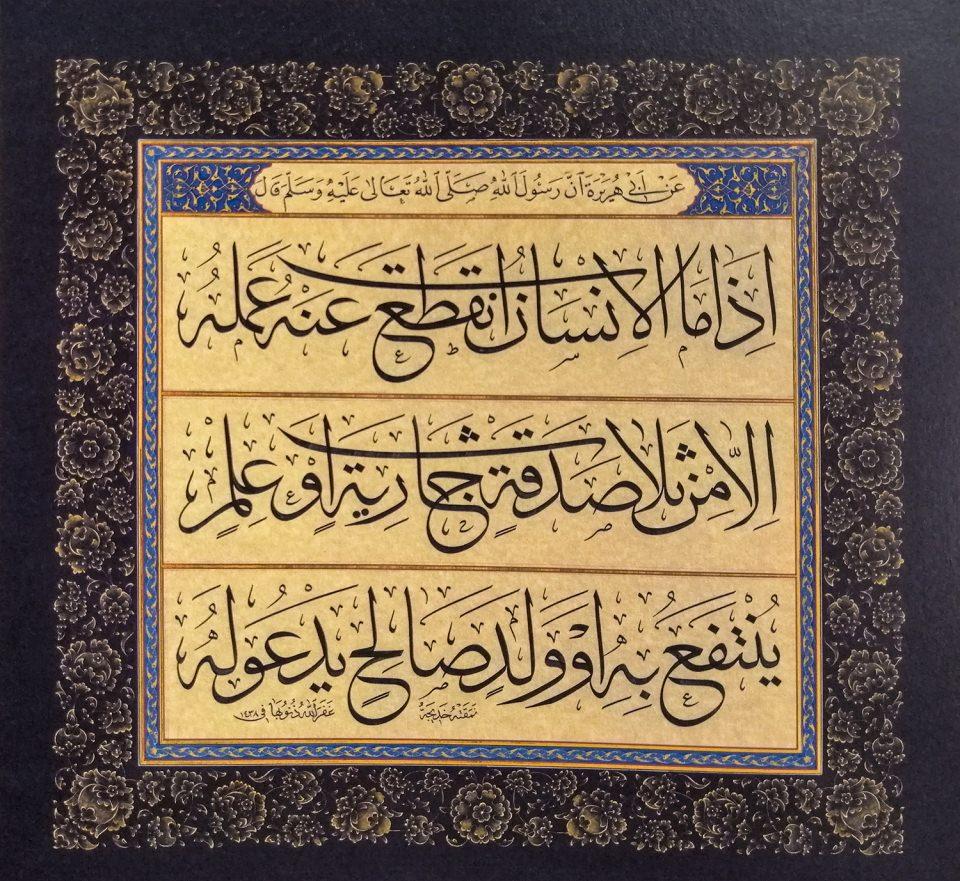 عَنْ أَبِي هُرَيْرَةَ أَنَّ رَسُولَ اللهِ صَلَّى اللهُ تَعَالَى عَلَيْهِ وَسَلَّمَ قَالَ
اِذَا مَاتَ الْاِنْسَانُ انْقَطَعَ عَنْهُ عَمَلُهُ
اِلَّا مِنْ ثَلَاثٍ صَدَقَةٍ جَارِيَةٍ اَوْ عِلْمٍ
يُنْتَفَعُ بِهِ اَوْ وَلَدٍ صَالِحٍ يَدْعُو لَهُ
نَمَّقَتْهُ خَدِيجَة غَفَرَ اللهُ ذُنُوبَهَا فِي ١٤٣٨